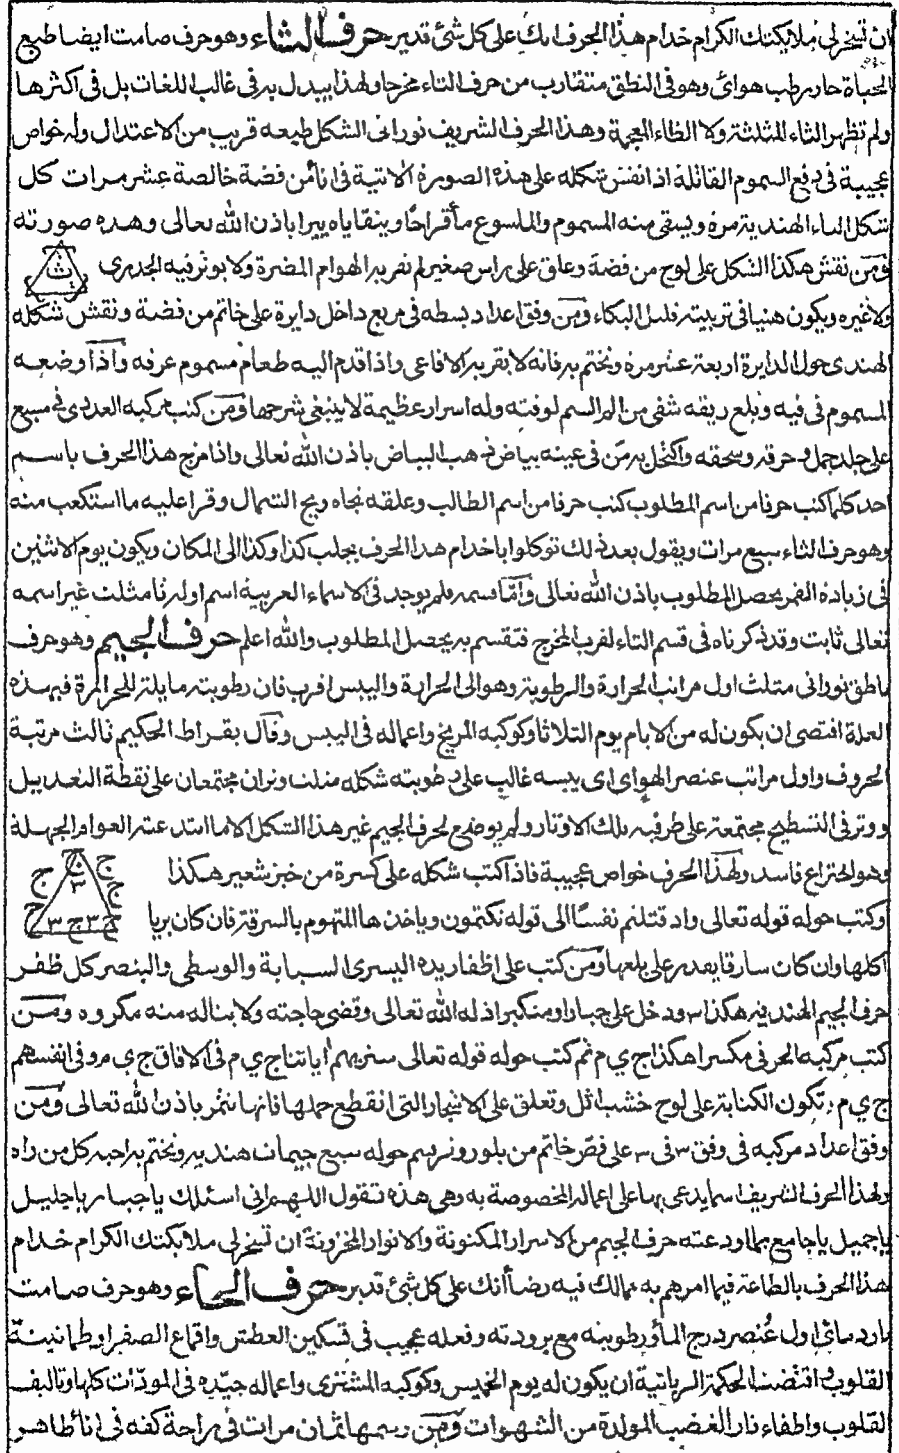 ان تسخر لي ملايكتك الكرام خدام هذا الحرف انك على كل شئ قدير حرف الثاء وهو حرف صامت ايضا طبع
الحياة حار رطب هوائي وهو في النطق متقارب من حرف التاء مخرجا ولهذا يبدل به في غالب اللغات بل في اكثرها
ولم تظهر الثاء المثلثة ولا الظاء المعجمة وهذا الحرف الشريف نوراني الشكل طبعه قريب من الاعتدال وله خواص
عجيبة في دفع السموم القاتلة اذا نقش شكله على هذه الصورة الاتية في اناء من فضة خالصة عشر مرات كل
شكل الثاء الهندية مرة ويسقى منه المسموم والملسوع ماء قراحا ويتقاياه يبرا باذن الله تعالى وهذه صورته
ومن نقش هكذا الشكل على لوح من فضة وعلق على راس صغير لم تقربه الهوام المضرة ولا يوثر فيه الجدري
ث
ولا غيره ويكون هنيا في تربيته قليل البكاء ومن وفق اعداد بسطه في مربع داخل دايرة على خاتم من فضة ونقش شكله
الهندي حول الدايرة اربعة عشر مرة وتختم به فانه لا تقربه الافاعي واذا قدم اليه طعام مسموم عرفه واذا وضعه
المسموم في فيه وبلع ريقه شفي من الم السم لوقته وله اسرار عظيمة لا ينبغي شرحها ومن كتب مركبه العددي في مسبع
على جلد جمل وحرقه وسحقه واكتحل به من في عينه بياض ذهب البياض باذن الله تعالى واذا مزج هذا الحرف باسم
احد كلما كتب حرفا من اسم المطلوب كتب حرفا من اسم الطالب وعلقه تجاه ريح الشمال وقرا عليه ما استكعب منه
وهو حرف الثاء سبع مرات ويقول بعد ذلك توكلوا يا خدام هذا الحرف بجلب كذا وكذا الى المكان ويكون يوم الاثنين
في زيادة القمر يحصل المطلوب باذن الله تعالى واما قسمه فلم يوجد في الاسماء العربية اسم اوله ثا مثلث غير اسمه
تعالى ثابت وقد ذكرناه في قسم التاء لقرب المخرج فتقسم به يحصل المطلوب والله اعلم حرف الجيم وهو حرف
ناطق نوراني مثلث اول مراتب الحرارة والرطوبة وهو الى الحرارة واليبس اقرب فان رطوبته مايلة للحرارة فبهذه
العلة اقتضى ان يكون له من الايام يوم الثلاثا وكوكبه المريخ واعماله في اليبس وقال بقراط الحكيم ثالث مرتبة
الحروف واول مراتب عنصر الهواي اي يبسه غالب على رطوبته شكله مثلث وتران مجتمعان على نقطة التعديل
ووتر في التسطيح مجتمعة على طرفيه تلك الاوتار ولم يوضع لحرف الجيم غير هذا الشكل الا ما ابتدعته العوام الجهلة
وهو اختراع فاسد ولهذا الحرف خواص عجيبة فاذا كتب شكله على كسرة من خبز شعير هكذا
ج ج ج ج ج ٣ ج ٣ ج ٣ ج
وكتب حوله قوله تعالى واذ قتلتم نفسا الى قوله تكتمون وياخذها المتهوم بالسرقة فان كان بريا
اكلها وان كان سارقا يقدر على بلعها ومن كتب على اظفار يده اليسرى السبابة والوسطى والبنصر كل ظفر
حرف الجيم الهندية هكذا ٣ ودخل على جبار او متكبر اذله الله تعالى وقضى حاجته ولا يناله منه مكروه ومن
كتب مركبه الحرفي مكسرا هكذا ج ي م ثم كتب حوله قوله تعالى سنريهم اياتنا ج ي م في الافاق ج ي م وفي انفسهم
ج ي م وتكون الكتابة على لوح خشب اثل وتعلق على الاشجار التي انقطع حملها فانها تثمر باذن الله تعالى ومن
وفق اعداد مركبه في وفق ٣ في ٣ على فص خاتم من بلور ورسم حوله سبع جيمات هندية وتختم به احبه كل من راه
ولهذا الحرف الشريف اسما يدعى بها على اعماله المخصوصة به وهي هذه تقول اللهم اني اسئلك يا جبار يا جليل
يا جميل يا جامع بما اودعته حرف الجيم من الاسرار المكنونة والانوار المخزونة ان تسخر لي ملايكتك الكرام خدام
هذا الحرف بالطاعة فيما امرهم به مما لك فيه رضا انك على كل شئ قدير حرف الحاء وهو حرف صامت
بارد مائي اول عنصر درج الماء ورطوبته مع برودته وفعله عجيب في تسكين العطش واقماع الصفرا وطمانينة
القلوب واقتضت الحكمة الربانية ان يكون له يوم الخميس وكوكبه المشتري واعماله جيده في المودات كلها وتاليف
القلوب واطفاء نار الغضب المولدة من الشهوات ومن رسمها ثمان مرات في راحة كفه في اناء طاهر